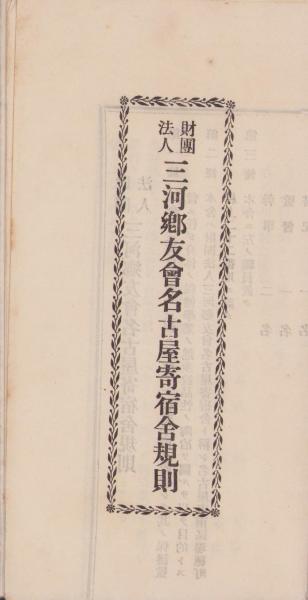 財團
法人
三河鄕友會名古屋寄宿舍規則